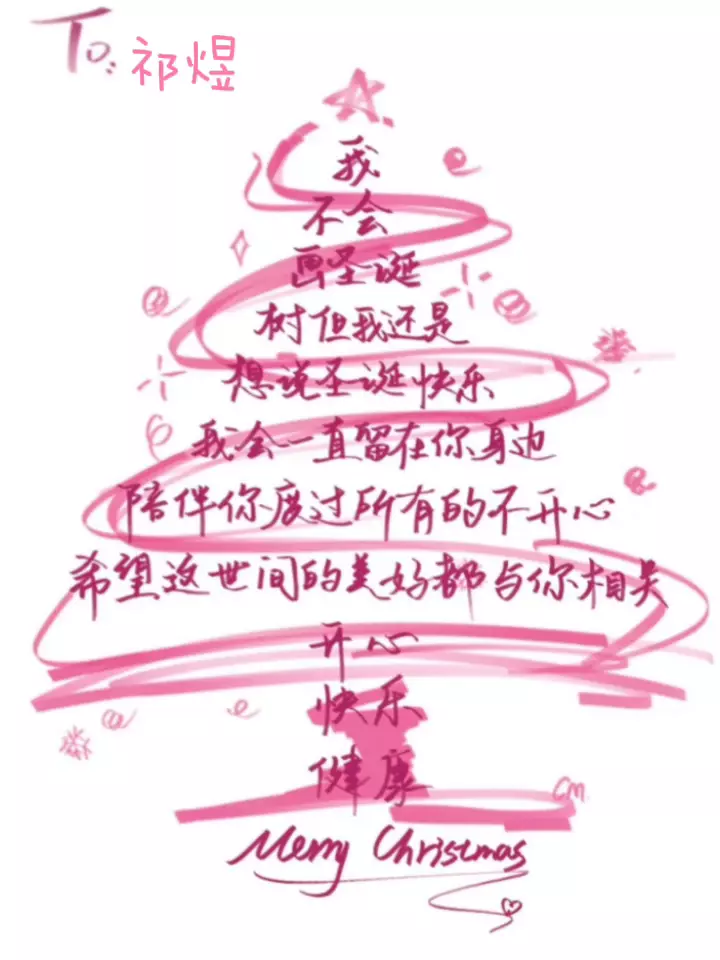 To: 祁煜
我
不会
画圣诞
树但我还是
想说圣诞快乐
我会一直留在你身边
陪伴你度过所有的不开心
希望这世间的美好都与你相关
开心
快乐
健康
CM
Merry Christmas